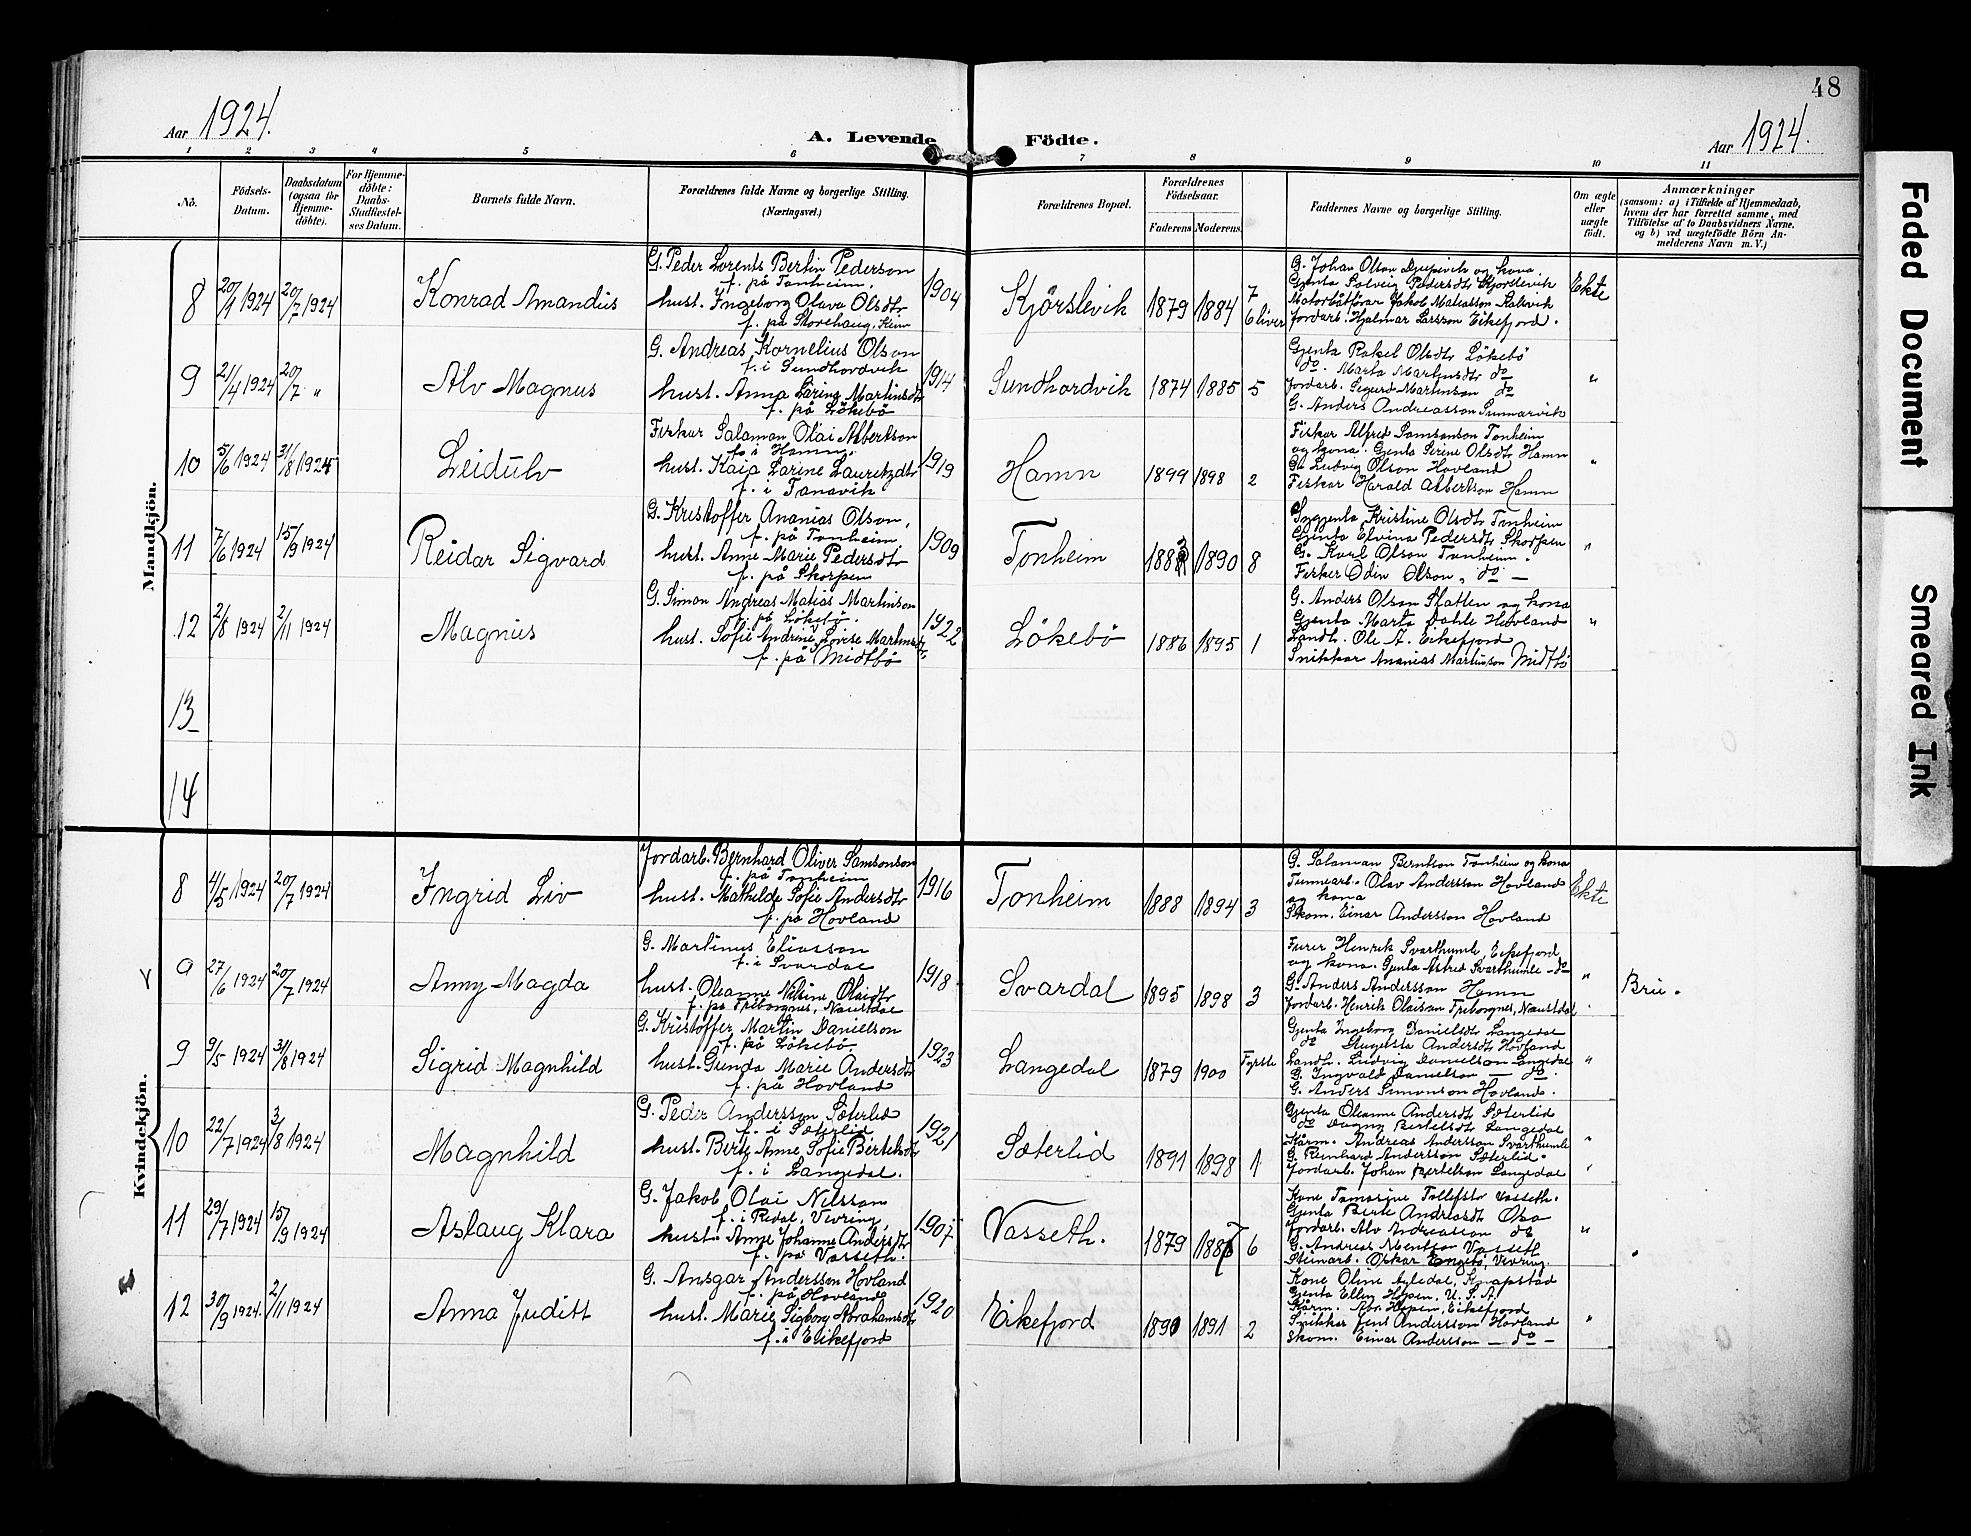 48
Aar 1924.
A. Levende Födte.
Aar 1924.
1 2 3 4 5 6 7 8 9 10 11
No.
Födsels-Datum.
Daabsdatum (ogsaa för Hjemme-döbte).
For Hjemme-döbte: Daabs-Stadfæstel-ses Datum.
Barnets fulde Navn.
Forældrenes fulde Navne og borgerlige Stilling.
(Næringsvei.)
Forældrenes Bopæl.
Forældrenes Födselsaar.
Faderens Moderens
Faddernes Navne og borgerlige Stilling.
Om ægte eller uægte födt.
Anmærkninger
(saasom: a) i Tilfælde af Hjemmedaab,
hvem der har forrettet samme, med
Tilföielse af to Daabsvidners Navne.
og b) ved uægtefödte Börn An-
melderens Navn m. V.)
Mandkjön.
8 20/1 1924 20/7 1924 Konrad Amandus
G. Peder Lorents Bertin Pederson
f. på Tonheim.
hust. Ingeborg Olava Olsdtr
f. på Storehaug, Kinn
1904 Kjörslevik 1879 1884 7
6 liver
G. Johan Olson Djupevik og kona
Gjenta Solveig Pedersdtr Kjörslevik
Motorbåtförar Jakob Matiasson Kalsvik
Jordarb. Hjalmar Larsson Eikefjord.
Ekte
9 21/4 1924 20/7 " Alv Magnus
G. Andreas Kornelius Olson
f. i Sundhordvik
hust. Anna Larina Martinsdtr
f. på Lökebö
1914 Sundhordvik 1874 1885 5
Gjenta Rakel Olsdtr Lökebö
do. Marta Martinsdtr do
Jordarb. Sigurd Martinson do
G. Anders Andreasson Sunnarvik
"
10 5/6 1924 31/8 1924 Leidulv
Fiskar Salamon Olai Albertson
f. i Hamn.
hust. Kaia Larine Lauritzdtr
f. i Tansvik
1919 Hamn 1899 1898 2
Fiskar Alfred Samsonson Tonheim
og kona. Gjenta Serine Olsdtr Hamn
G. Ludvig Olson Hovland
Fiskar Harald Albertson Hamn
"
11 7/6 1924 15/9 1924 Reidar Sigvard
G. Kristoffer Ananias Olson,
f. på Tonheim
hust. Anne Marie Pedersdtr
f. på Skorpen
1909 Tonheim 1883 1890 8
Sygjenta Kristine Olsdtr Tonheim
Gjenta Elvina Pedersdtr Skorpen
G. Karl Olson Tonheim.
Fisker Odin Olson, do —
"
12 2/8 1924 2/11 1924 Magnus
G. Simon Andreas Matias Martinson
f. på Lökebö.
hust. Sofie Andrine Lovise Martinsdtr
f. på Midtbö
1922 Lökebö 1886 1895 1
G. Anders Olson Slatten og kona
Gjenta Marta Dahle Hovland
Landh. Ole A. Eikefjord
Snikkar Ananias Martinson Midtbö
"
13
14
Kvindekjön.
8 4/5 1924 20/7 1924 Ingrid Liv
Jordarb. Bernhard Oliver Samsonson
f. på Tonheim
hust. Mathilde Sofie Andersdtr
f. på Hovland
1916 Tonheim 1888 1894 3
G. Salaman Berntson Tonheim og kona
Tunnearb. Olav Andersson Hovland
og kona
Skom. Einar Andersson Hovland
Ekte
9 27/6 1924 20/7 1924 Anny Magda
G. Martinus Eliasson
f. i Svardal
hust. Oleanne Nilsine Olaidtr
f. på Treborgnes, Naustdal
1918 Svardal 1895 1898 3
Furer Henrik Svarthumle, Eikefjord
og kona. Gjenta Astrid Svarthumle - do
G. Anders Andersson Hamn
Jordarb. Henrik Olaison Treborgnes, Naustdal
" Bru.
9 9/5 1924 31/8 1924 Sigrid Magnhild
G. Kristoffer Martin Danielson
f. på Lökebö
hust. Gunda Marie Andersdtr
f. på Hovland
1923 Langedal 1879 1900 Fyrste
Gjenta Ingeborg Danielsdtr Langedal
do Augusta Andersdtr Hovland
Landh. Ludvig Danielson Langedal
G. Ingvald Danielson — do.
G. Anders Simonson Hovland.
"
10 22/7 1924 31/8 1924 Magnhild
G. Peder Andersson Sæterlid
f. i Sæterlid
hust. Berte Anne Sofie Bertelsdtr
f. i Langedal.
1921 Sæterlid 1891 1898 1
Gjenta Oleanne Andersdtr Sæterlid
do Dagny Bertelsdtr Langedal
Kårm. Andreas Andersson Svarthumle
G. Reinhard Andersson Sæterlid.
Jordarb. Johan Bertelson Langedal
"
11 29/7 1924 15/9 1924 Aslaug Klara
G. Jakob Olai Nilsson
f. i Redal, Vevring,
hust. Anne Johanne Andersdtr
f. på Vasseth.
1907 Vasseth. 1879 1887 6
Kone Tomasine Tollefsdtr Vasseth.
Gjenta Berte Andreasdtr Osa
Jordarb. Alv Andreasson do
G. Andreas Mentson Vasseth
Steinarb. Oskar Engebö, Vevring.
"
12 30/9 1924. 2/11 1924 Anna Juditt
G. Ansgar Andersson Hovland
f. på Hovland
hust. Marie Sigborg Abrahamsdtr
f. i Eikefjord
1920 Eikefjord 1890 1891 2
Kone Oline Ayledal, Knapstad
Gjenta Elley Hopen, U. S. A.
Kårm. Abr. Hopen, Eikefjord
Snikkar Jens Andersson Hovland
Skom. Einar Andersson — do —
"
Faded Document
Smeared Ink